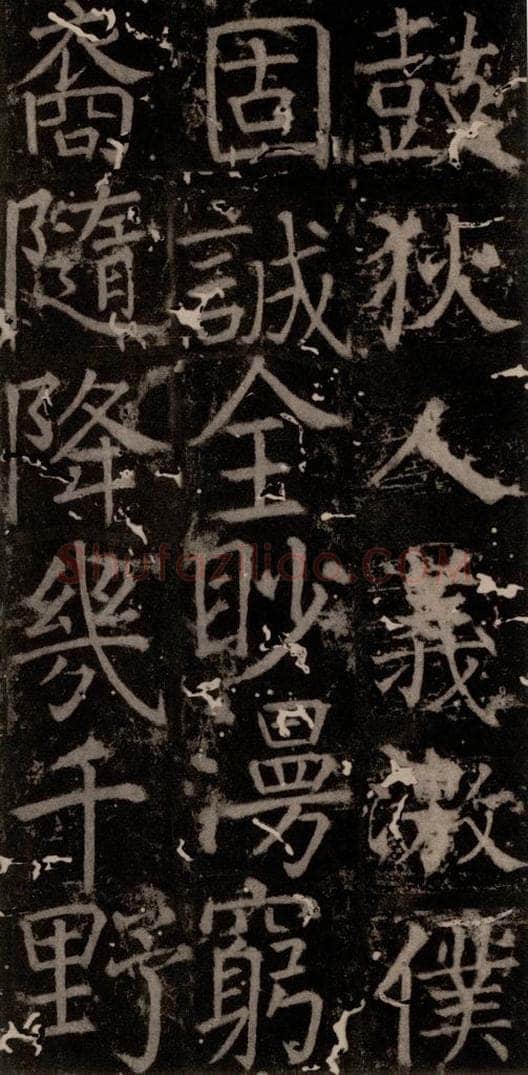 鼓狄人義僕
固誠全眇曼窮
裔隨降幾千野
Shufaziliao.COM